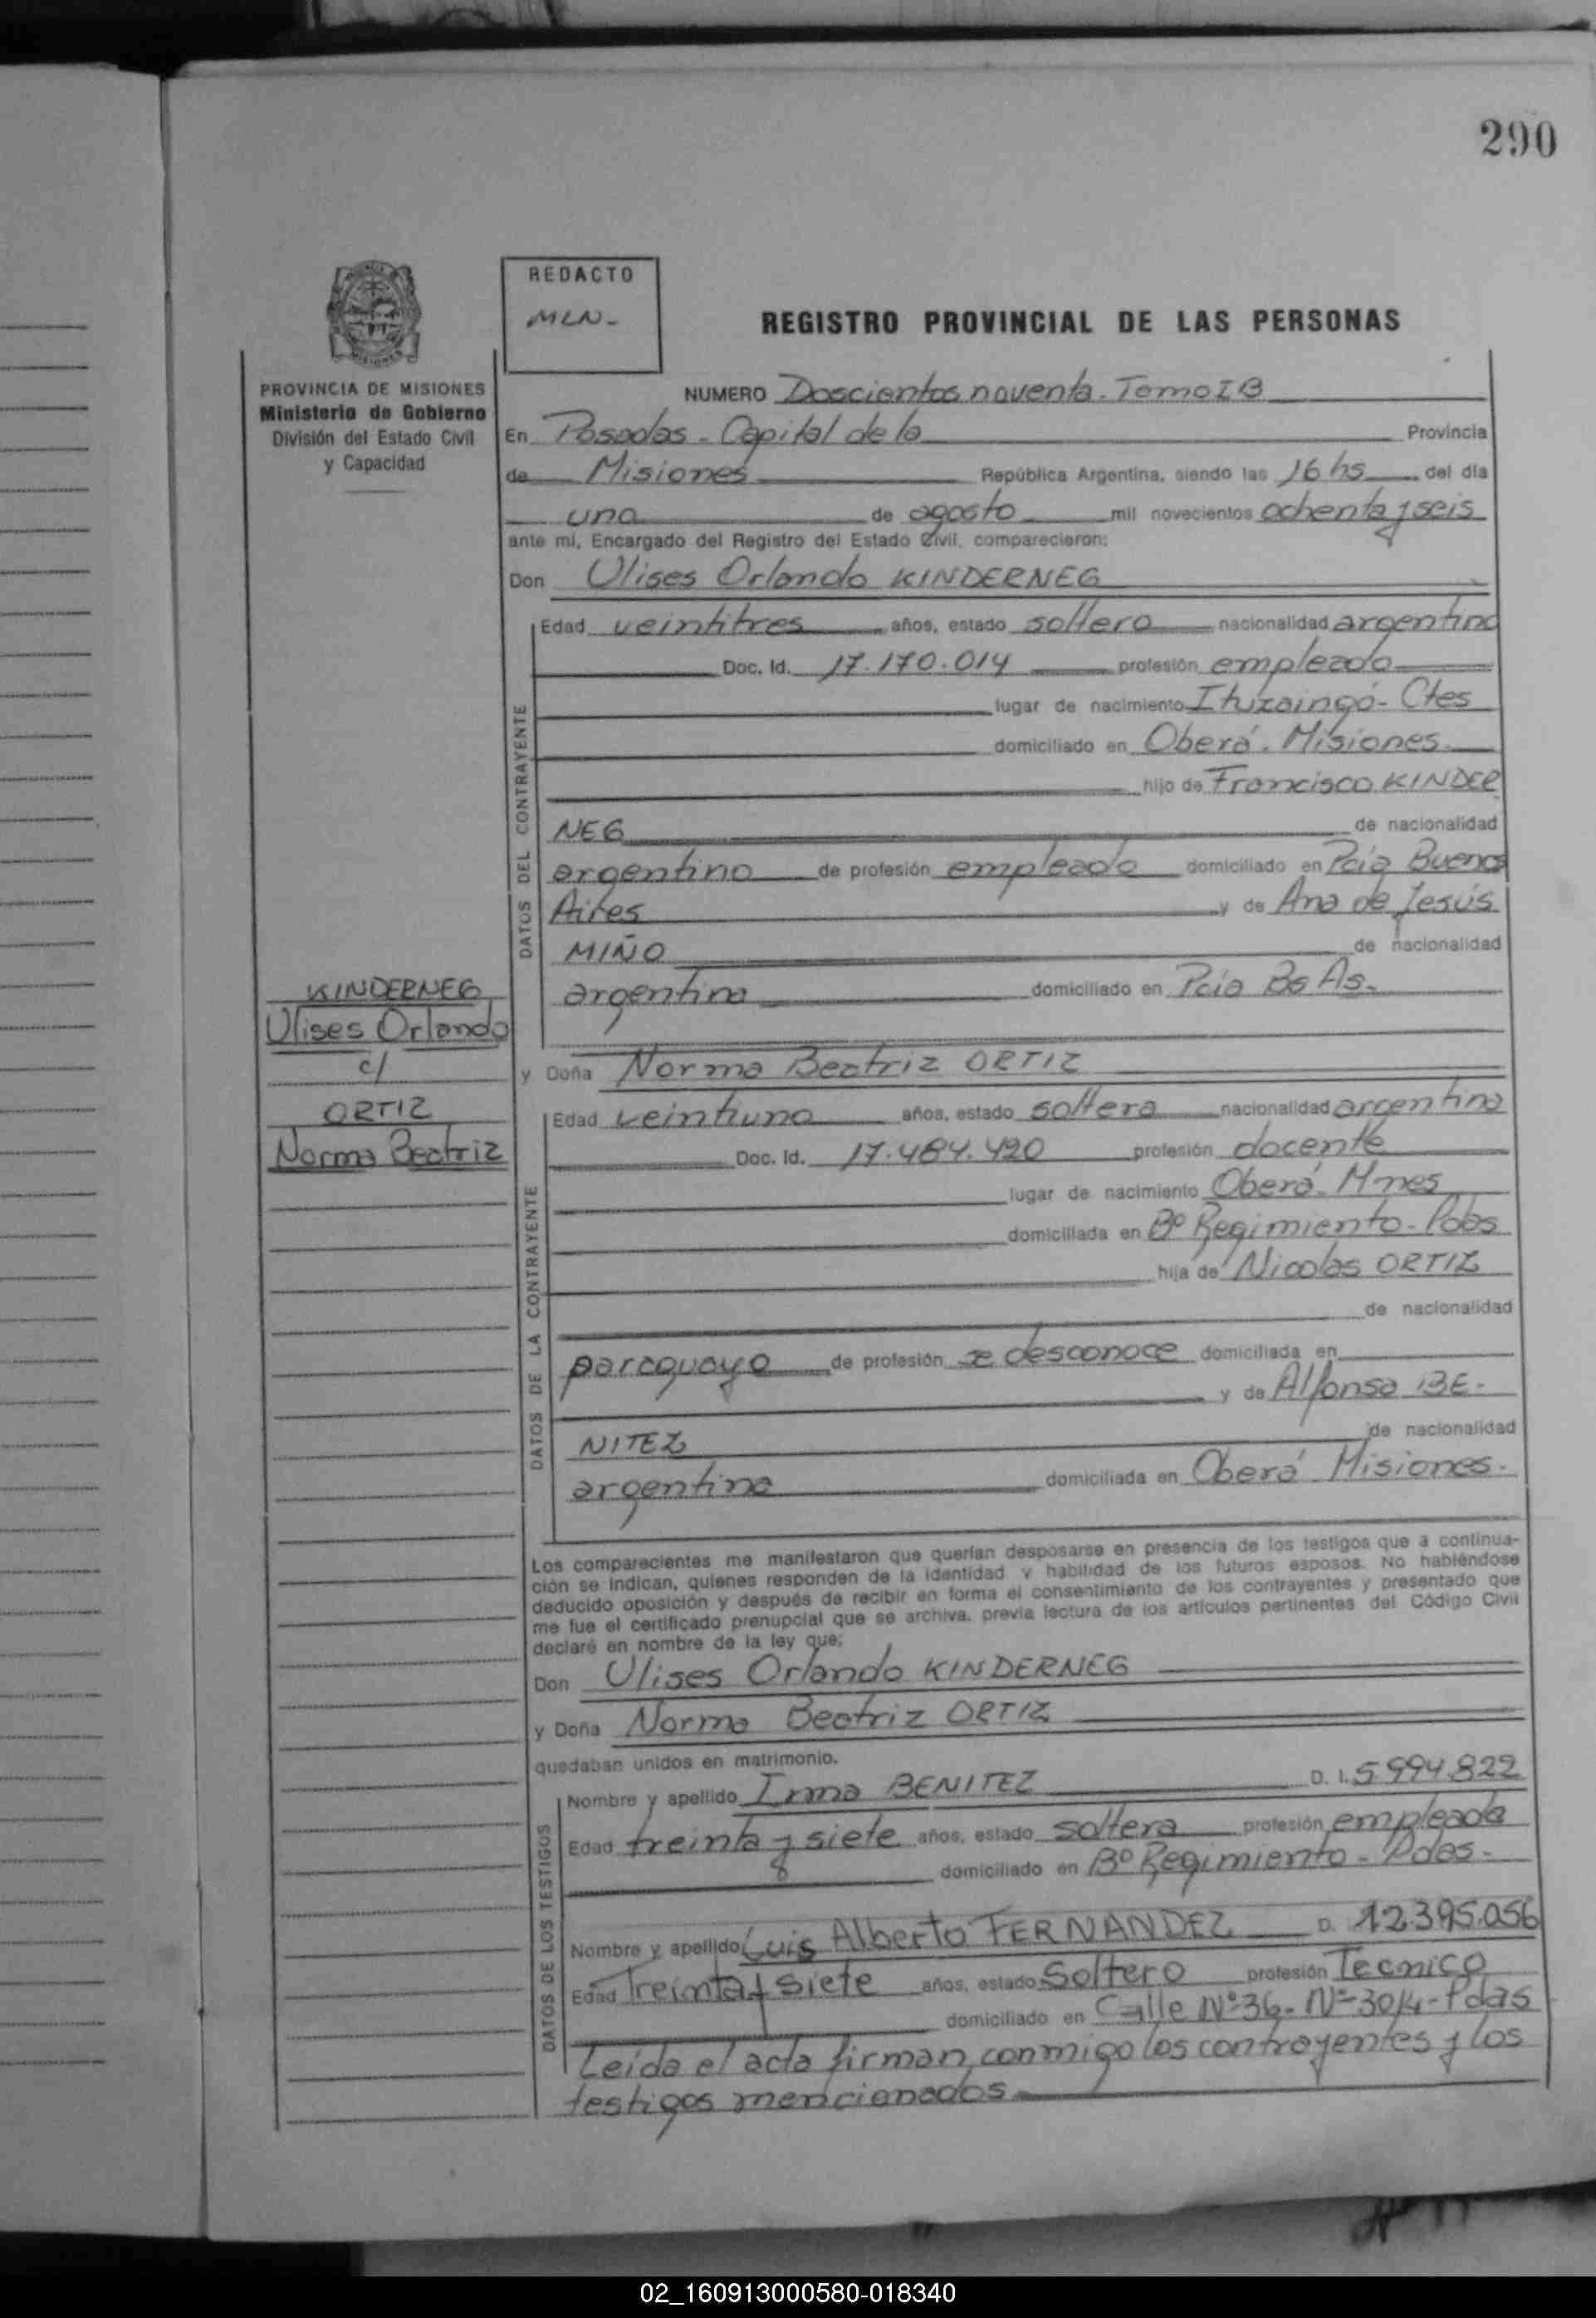 290
REDACTO
MLN-
REGISTRO PROVINCIAL DE LAS PERSONAS
PROVINCIA DE MISIONES
Ministerio de Gobierno
División del Estado Civil
y Capacidad
NUMERO Doscientos noventa - Tomo I B
En Posadas - Capital de la Provincia
de Misiones República Argentina, siendo las 16 hs del día
uno de agosto mil novecientos ochenta y seis
ante mí, Encargado del Registro del Estado Civil, comparecieron:
Don Ulises Orlando KINDERNEG
DATOS DEL CONTRAYENTE
Edad veintitres años, estado soltero nacionalidad argentino
Doc. Id. 17.170.014 profesión empleado
lugar de nacimiento Ituzaingó - Ctes
domiciliado en Oberá - Misiones
hijo de Francisco KINDER
NEG de nacionalidad
argentino de profesión empleado domiciliado en Pcia Buenos
Aires y de Ana de Jesús
MIÑO de nacionalidad
argentina domiciliado en Pcia Bs As.
KINDERNEG
Ulises Orlando
c/
ORTIZ
Norma Beatriz
y Doña Norma Beatriz ORTIZ
DATOS DE LA CONTRAYENTE
Edad veintiuno años, estado soltera nacionalidad argentina
Doc. Id. 17.484.420 profesión docente
lugar de nacimiento Oberá - Mnes
domiciliada en Bº Regimiento - Pdas
hija de Nicolas ORTIZ
de nacionalidad
paraguayo de profesión se desconoce domiciliada en
y de Alfonsa BE-
NITEZ de nacionalidad
argentina domiciliada en Oberá Misiones.
Los comparecientes me manifestaron que querían desposarse en presencia de los testigos que a continua-
ción se indican, quienes responden de la identidad y habilidad de los futuros esposos. No habiéndose
deducido oposición y después de recibir en forma el consentimiento de los contrayentes y presentado que
me fue el certificado prenupcial que se archiva, previa lectura de los artículos pertinentes del Código Civil
declaré en nombre de la ley que:
Don Ulises Orlando KINDERNEG
y Doña Norma Beatriz ORTIZ
quedaban unidos en matrimonio.
DATOS DE LOS TESTIGOS
Nombre y apellido Irma BENITEZ D. I. 5994.822
Edad treinta y siete años, estado soltera profesión empleada
domiciliado en Bº Regimiento - Pdas -
Nombre y apellido Luis Alberto FERNANDEZ D. 12.395.056
Edad Treinta y siete años, estado Soltero profesión Tecnico
domiciliado en Calle Nº 36 - Nº 3014 - Pdas
Leída el acta firman conmigo los contrayentes y los
testigos mencionados
02_160913000580-018340